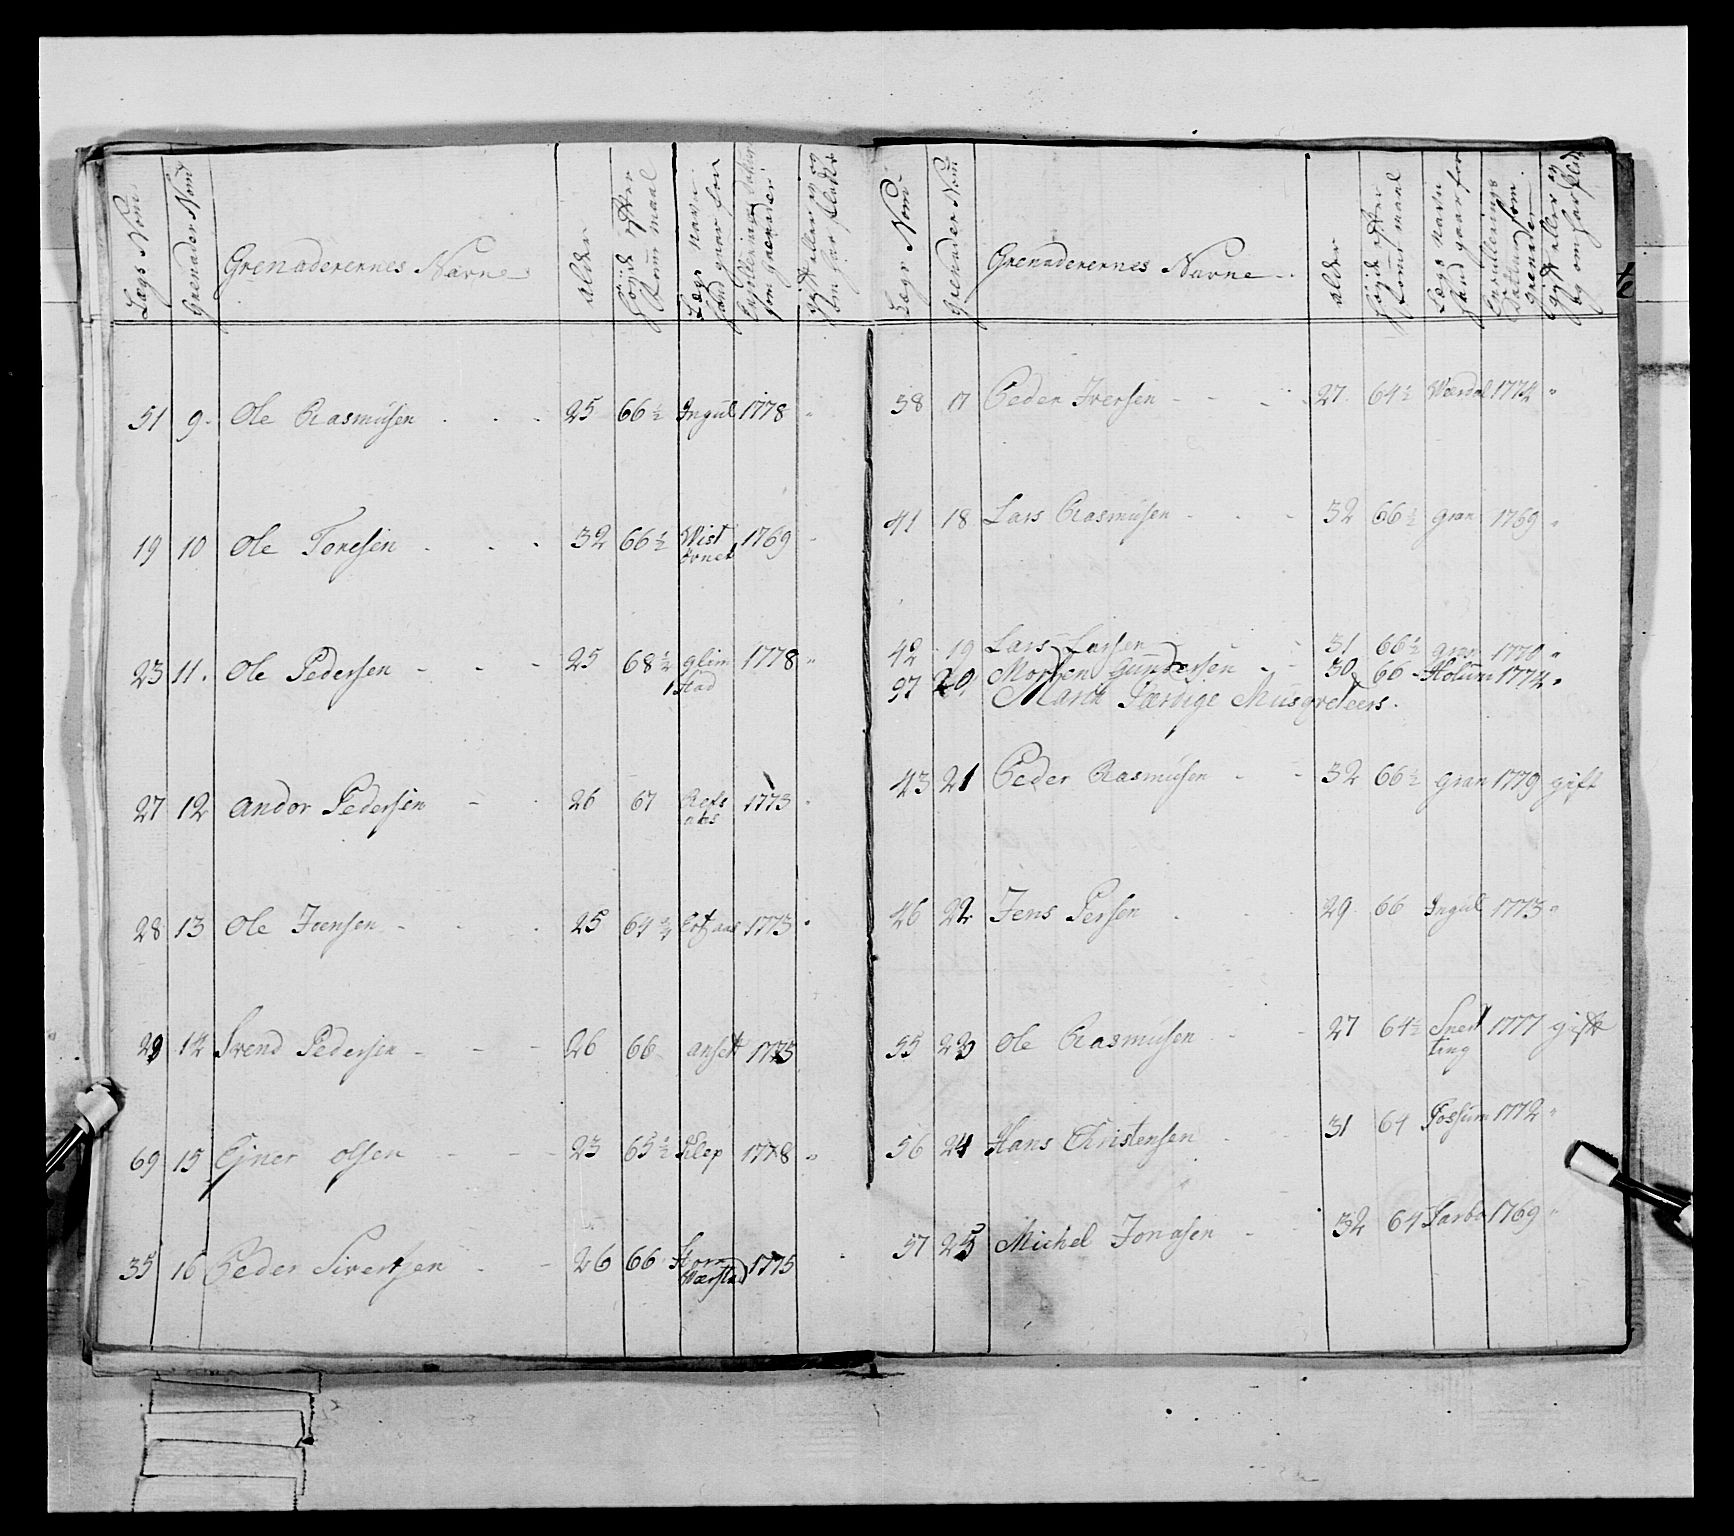 Lægs Nom
Grenader Nom
Grenaderernes Navne
alder
høyde efter Rom maal
Lægs Navn hand gaar for
som Grenader
51 9. Ole Rasmusen 25 66½ Ingul 1778 "
19 10 Ole Toresen 32 66½ Wist 1769
23 11. Ole Pedersen 25 68½ glim 1778 "
stad
27 12 andor Pedersen 26 67 Refs 1773
næs
28 13 Ole Joensen 25 64¾ 1773 "
29 14 Svend Pedersen 26 66 1775
69 15 Ejner olsen 23 65½ Klep 1778 "
35 16 Peder Sivertsen 26 66 1775
Lægs Nom
Grenader Nom
Grenaderernes Navne
alder
høyde efter Rom maal
Lægs Navn hand gaar for
Enrullerings Datum som Grenader
gift eller ey og om har
38 17 Peder Iversen 27 64½ Wærdal 1774 "
41 18 Lars Rasmusen 32 66½ gran 1769 "
42 19 Lars Larsen 31 66½ gran 1770 "
97 20 Morten Gundersen 30 66 Holum 1774 "
March Færdige Musqveteers.
43 21 Peder Rasmusen 32 66½ gran 1779 gift
46 22 Jens Persen 29 66 Ingul 1773 "
55 23 Ole Rasmusen 27 64½ Snert 1777 gift
ting
56 24 Hans Christensen 31 64 Fossum 1772 "
57 25 Michel Jonasen 32 64 1769 "